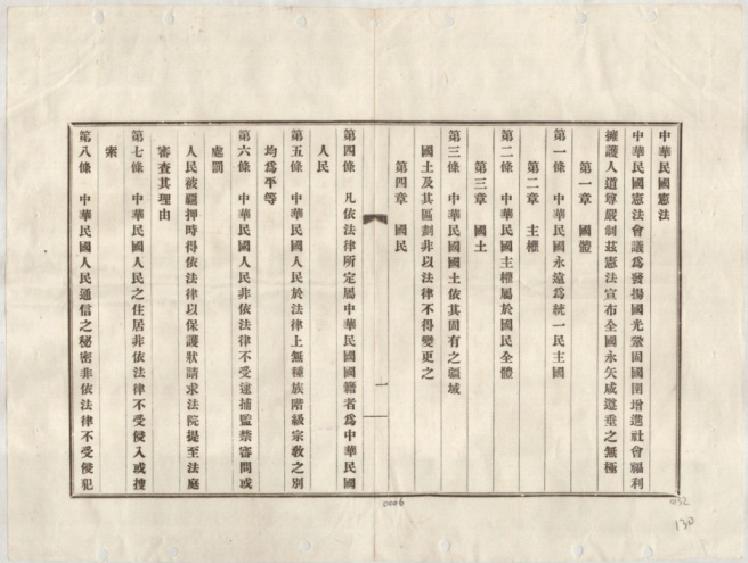 中華民國憲法
中華民國憲法會議爲發揚國光鞏固國圉增進社會福利
擁護人道尊嚴制茲憲法宣布全國永矢咸遵垂之無極
第一章 國體
第一條 中華民國永遠爲統一民主國
第二章 主權
第二條 中華民國主權屬於國民全體
第三章 國土
第三條 中華民國國土依其固有之疆域
國土及其區劃非以法律不得變更之
第四章 國民
一
第四條 凡依法律所定屬中華民國國籍者爲中華民國
人民
第五條 中華民國人民於法律上無種族階級宗教之別
均爲平等
第六條 中華民國人民非依法律不受逮捕監禁審問或
處罰
人民被羈押時得依法律以保護狀請求法院提至法庭
審查其理由
第七條 中華民國人民之住居非依法律不受侵入或搜
索
第八條 中華民國人民通信之秘密非依法律不受侵犯
0006
132
130